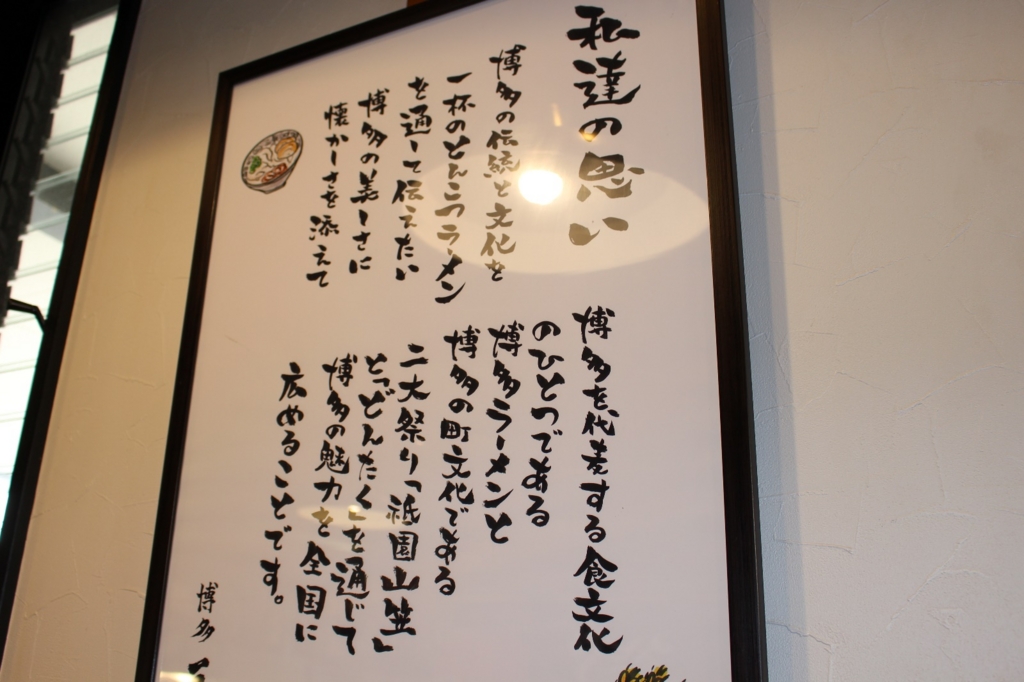 私達の思い
博多の伝統と文化を
一杯のとんこつラーメン
を通して伝えたい
博多の美しさに
懐かしさを添えて
博多を代表する食文化
のひとつである
博多ラーメンと
博多の町文化である
二大祭り「祇園山笠」
と「どんたく」を通じて
博多の魅力を全国に
広めることです。
博多